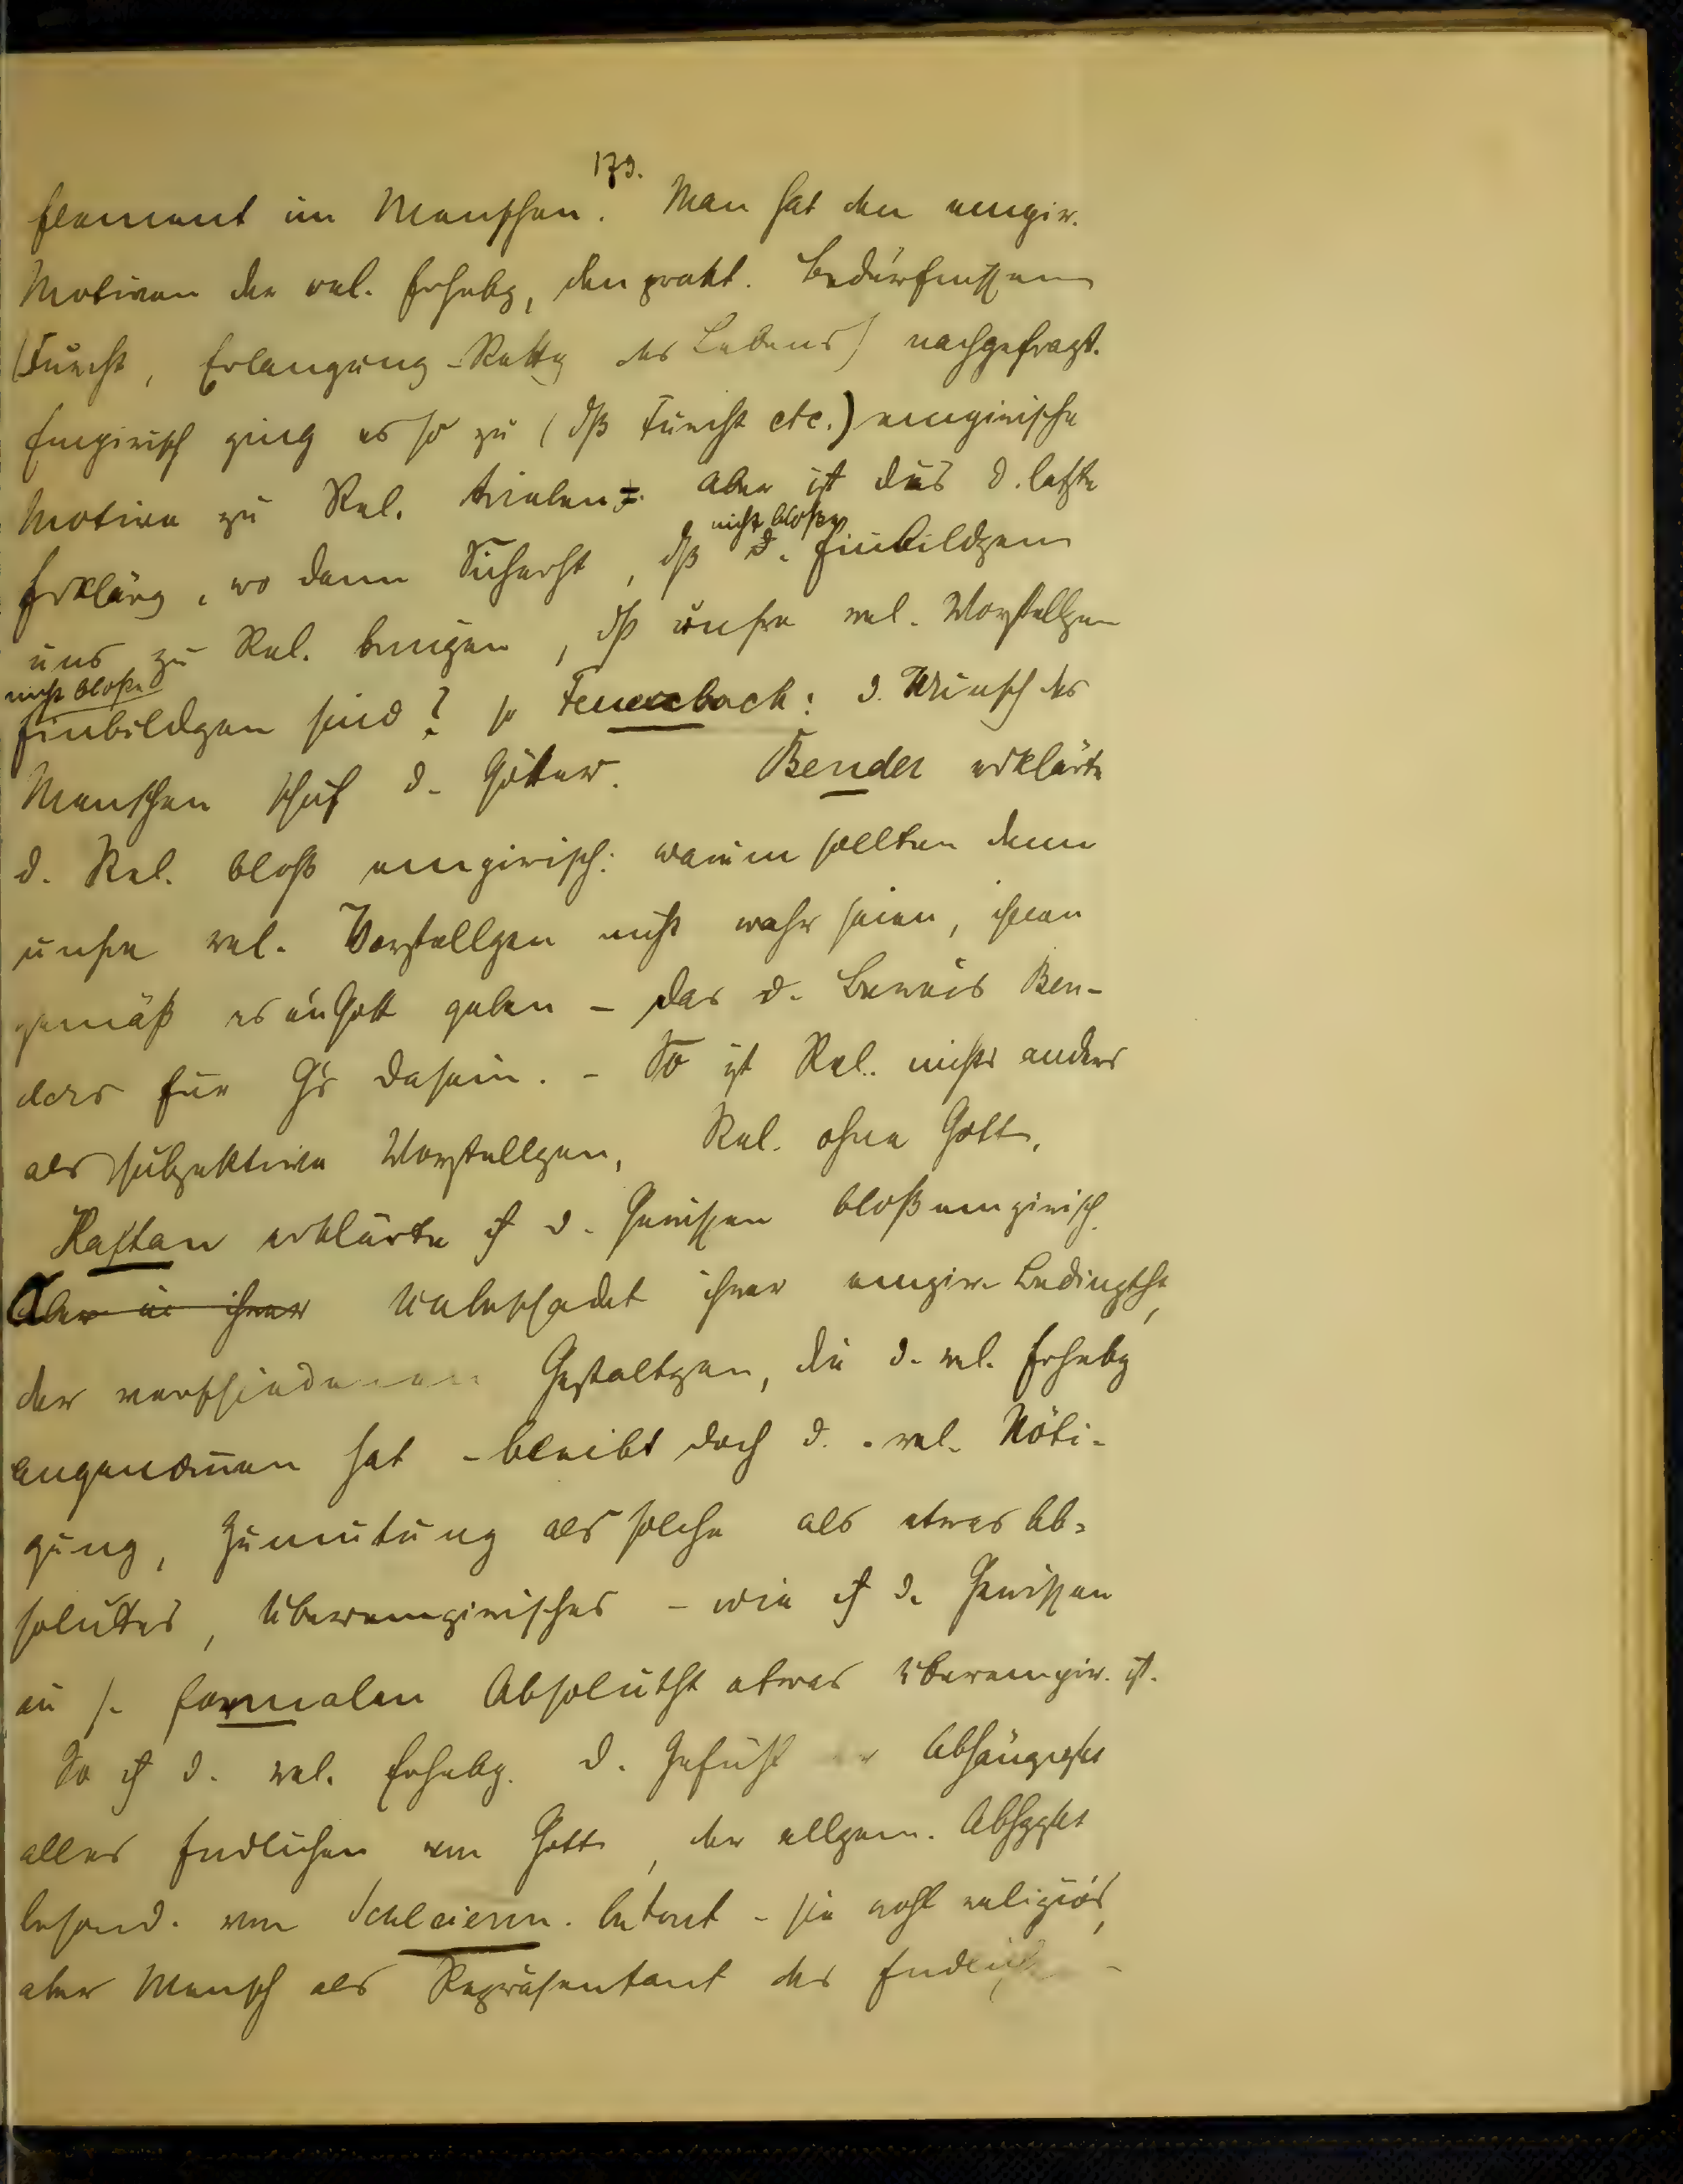 179.
Element im Menschen. Man hat den empir.
Motiven der rel. Erhebg, den prakt. Bedürfnissen
(Furcht, Erlangung - Rettg des Lebens) nachgefragt.
Empirisch ging es so zu (dß Furcht etc.) empirische
Motive zu Rel. trieben. Aber ist dies d. letzte
nicht bloße
Erklärg, wo denn Sicherht, dß d. Einbildgen
uns zu Rel. bringen, dß unsre rel. Vorstellgen
nicht bloße
Einbildgen sind? so Feuerbach: d. Wunsch des
Menschen schuf d. Götter. Bender erklärte
d. Rel. bloß empirisch: warum sollten denn
unsre rel. Vorstellgen nicht wahr seien, ihnen
gemäß es ein Gott geben - das d. Beweis Ben-
ders für G's Dasein. - So ist Rel. nichts anders
als subjektive Vorstellgen, Rel. ohne Gott.
Kaftan erklärte d. Gewissen bloß empirisch.
Aber in ihrer Unbeschadet ihrer empir. Bedingtht,
der verschiedenen Gestaltgen, die d. rel. Erhebg
angenom̄en hat - bleibt doch d. rel. Nöti-
gung, Zumutung als solche als etwas Ab-
solutes, Überempirisches - wie d. Gewissen
in s. formalen Absolutht etwas überempir. ist.
So ist d. rel. Erhebg. d. Gefühl der Abhängigkt
alles Endlichen von Gott, der allgem. Abhggkt
besond. von Schleierm. betont - sie wohl religiös,
aber Mensch als Repräsentant des Endlichen -